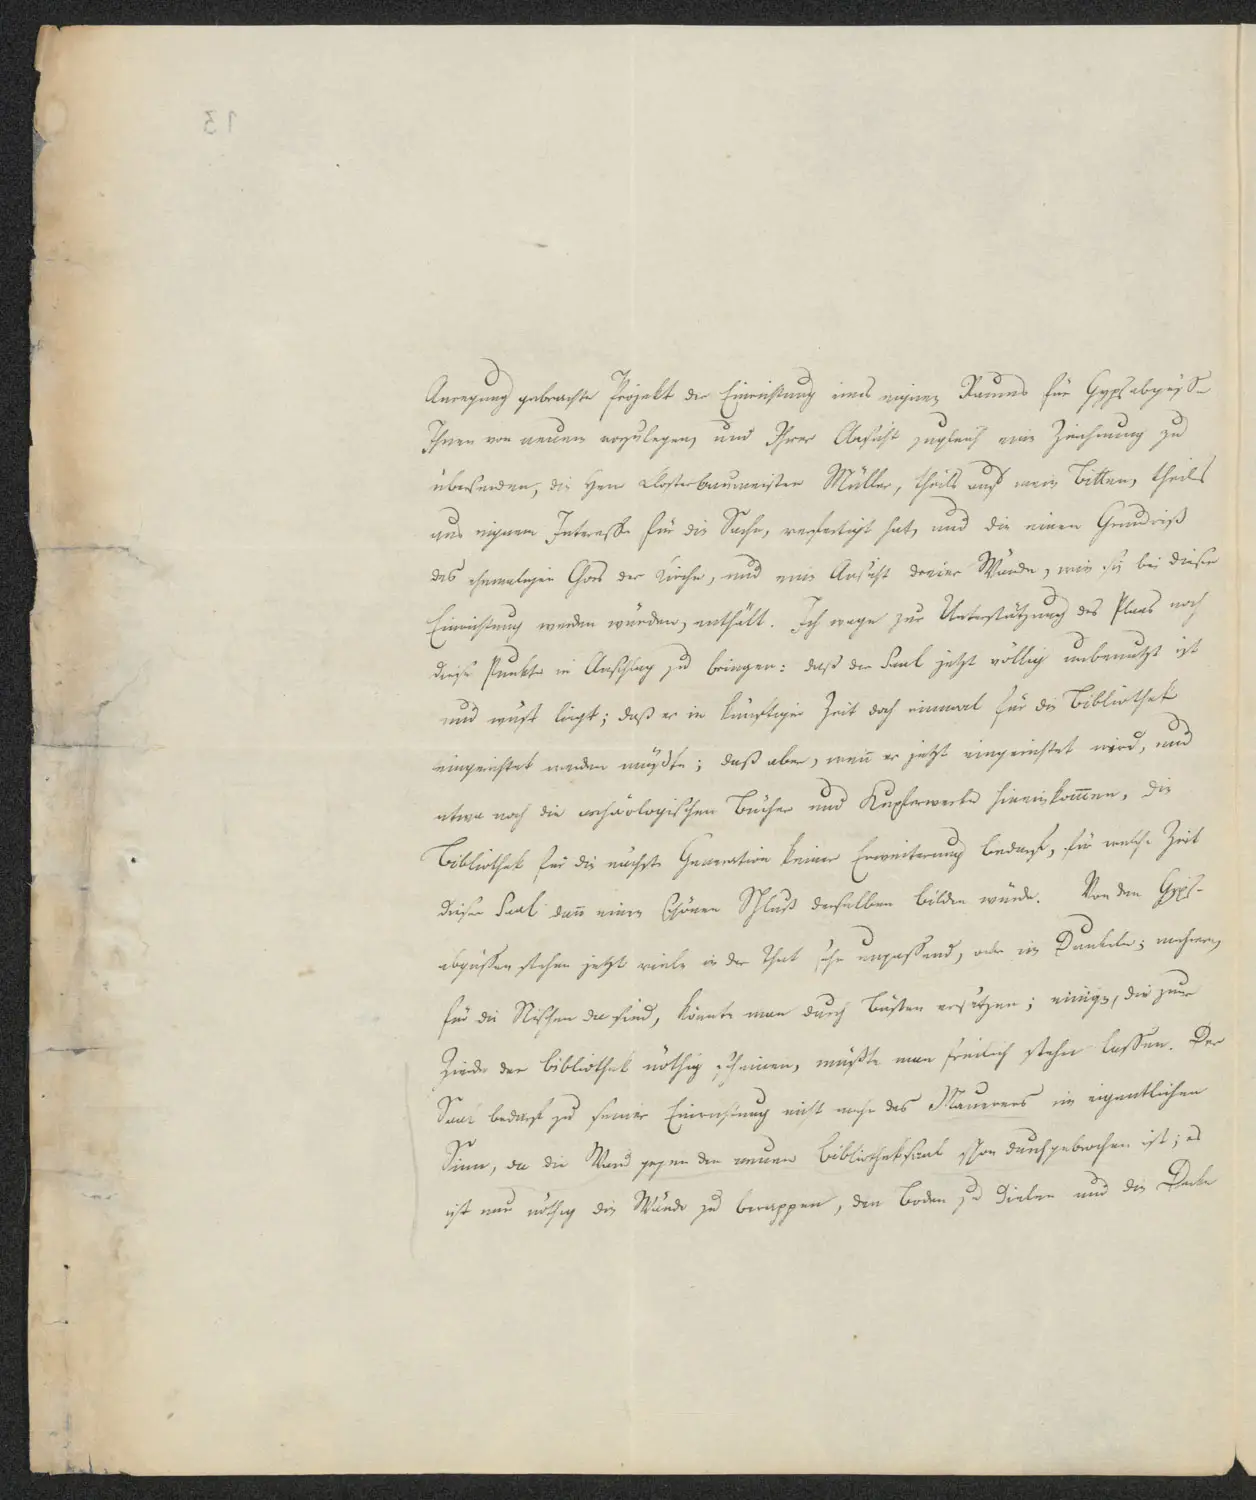 Anregung gebrachte Projekt der Einrichtung eines eignen Raums für Gypsabgüsse
Ihnen von neuem vorzulegen, und Ihrer Ansicht zugleich eine Zeichnung zu
übersenden, die Herr Klosterbaumeister Müller, theils auf mein Bitten, theils
aus eignem Interesse für die Sache, verfertigt hat, und die einen Grundriß
des ehemaligen Chors der Kirche, und eine Ansicht dreier Wände, wie sie bei dieser
Einrichtung werden würden, enthält. Ich wage zur Unterstützung des Plans noch
diese Punkte in Anschlag zu bringen: daß der Saal jetzt völlig unbenutzt ist
und wüst liegt; daß er in künftiger Zeit doch einmal für die Bibliothek
eingerichtet werden müßte; daß aber, wenn er jetzt eingerichtet wird, und
etwa noch die archäologischen Bücher und Kupferwerke hineinkommen, die
Bibliothek für die nächste Generation keiner Erweiterung bedarf, für welche Zeit
dieser Saal dann einen schönen Schluß derselben bilden würde. Von den Gyps-
abgüssen stehen jetzt viele in der That sehr unpassend, oder im Dunkeln; mehrere,
für die Nischen da sind, könnte man durch Büsten ersetzen; einige, die zur
Zierde der Bibliothek nöthig scheinen, müßte man freilich stehn lassen. Der
Saal bedarf zu seiner Einrichtung nicht mehr des Mauerers im eigentlichen
Sinne, da die Wand gegen den neuen Bibliotheksaal schon durchgebrochen ist; es
ist nur nöthig die Wände zu berappen, den Boden zu dielen und die Decke